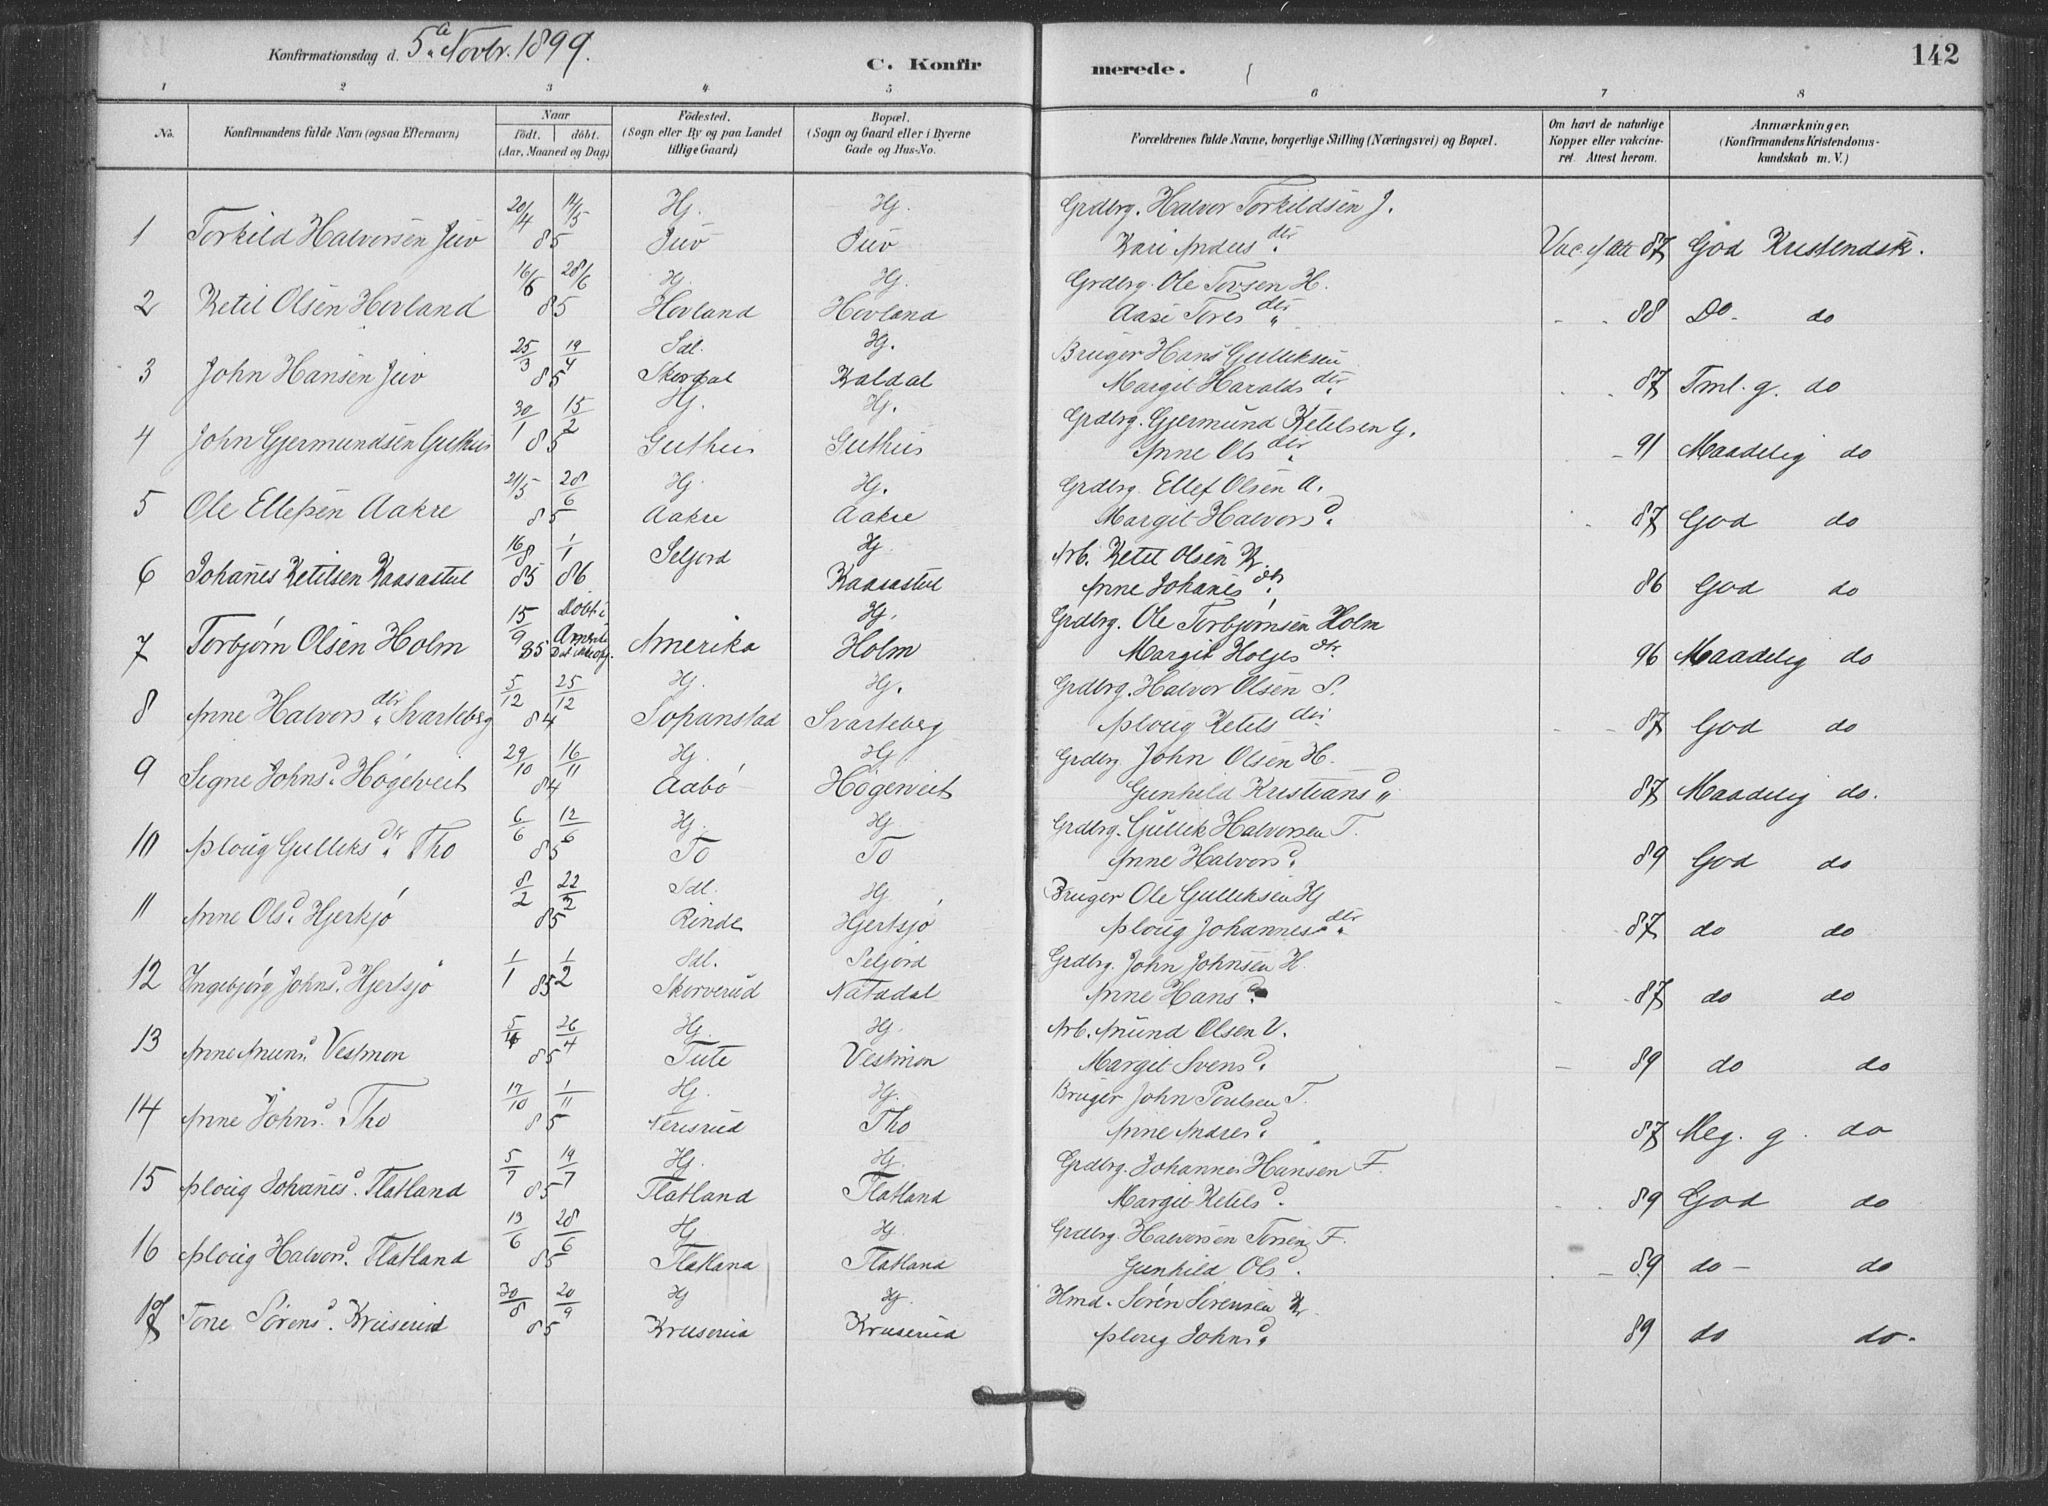 Konfirmationsdag d. 5te Novbr. 1899. C. Konfir merede. 142
1 2 3 4 5 6 7 8
No. Konfirmandens fulde Navn (ogsaa Efternavn) Naar födt. döbt. (Aar, Maaned og Dag) Födested. (Sogn eller By og paa Landet tillige Gaard) Bopæl. (Sogn og Gaard eller i Byerne Gade og Hus-No. Forældrenes fulde Navne, borgerlige Stilling (Næringsvei) og Bopæl. Om havt de naturlige Kopper eller vakcineret. Attest herom. Anmærkninger. (Konfirmandens Kristendomskundskab m. V.)
20/4 14/5 Hj. Hj. Grdbrg. Halvor Torkildsen J.
1 Torkild Halvorsen Juv 85 Juv Juv Kari Andersdtr. Vac. e/ att 87 God Kristendsk.
16/6 28/6 Hj. Hj. Grdbrg. Ole Torsen H.
2 Ketil Olsen Hovland 85 Hovland Hovland Aase Toresdtr 88 Do do
25/3 19/4 Sdl. Hj. Bruger Hans Gulliksen
3 John Hansen Juv 85 Skordal Kaldal Margit Haraldsdtr. 87 Tml. g. do
30/1 15/2 Hj. Hj. Grdbrg. Gjermund Ketilsen G.
4 John Gjermundsen Guthus 85 Guthus Guthus Anne Olsdtr 91 Maadelig do
21/5 28/6 Hj. Hj. Grdbrg. Ellef Olsen A.
5 Ole Ellefsen Aakre 85 Aakre Aakre Margit Halvorsd. 87 God do
16/8 1/1 Seljord Hj. Arb. Ketil Olsen K.
6 Johanes Ketilsen Kaasastul 85 86 Kaasastul Anne Johanesdtr. 86 God do
15/9 Döbt i Hj. Grdbrg. Ole Torbjørnsen Holm
7 Torbjørn Olsen Holm 85 Amerika Holm Margit Holjesdtr. 96 Maadelig do
5/12 25/12 Hj. Hj. Grdbrg. Halvor Olsen S.
8 Anne Halvorsdtr Svarteberg 84 Sopanstad Svarteberg Asloug Ketilsdtr 87 God do
29/10 16/11 Hj. Hj. Grdbrg. John Olsen H.
9 Signe Johnsd. Høgetveit 84 Aabö Høgetveit Gunhild Kristiansd. 87 Maadelig do.
6/6 12/6 Hj. Hj. Grdbrg. Gullik Halvorsen T.
10 Asloug Gulliksdtr. Tho 85 To To Anne Halvorsd. 89 God do
8/2 22/2 Sdl. Hj. Bruger Ole Gulliksen Hj
11 Anne Olsd. Hjerksjø 85 Rinde Hjertsjø Asloug Johannesdtr. 87 do do
1/1 1/2 Sdl. Seljord Grdbrg. John Johnsen H.
12 Ingebjørg Johnsd. Hjertsjø 85 Skorverud Natadal Anne Hansd. 87 do do
5/4 26/4 Hj. Hj. Arb. Amund Olsen V.
13 Vestmon 85 Tute Vestmon Margit Svensd. 89 do do
17/10 1/11 Hj. Hj. Bruger John Poulsen T.
14 Anne Johnsd. Tho 85 Nerisrud Tho Anne Andresd. 87 Meg. g. do
5/7 19/7 Hj. Hj. Grdbrg. Johannes Hansen F.
15 Asloug Johanesd. Flatland 85 Flatland Flatland Margit Ketilsd. 89 God do
13/6 28/6 Hj Hj. Grdbrg. Halvorsen F.
16 Asloug Halvorsd. Flatland 85 Flatland Flatland Gunhild Olsd. 89 do do
30/8 20/9 Hj Hj. Hmd. Søren Sørensen K.
17 Tone Sørensd. Kruserud 85 Kruserud Kruserud Asloug Johnsd. 89 do do.